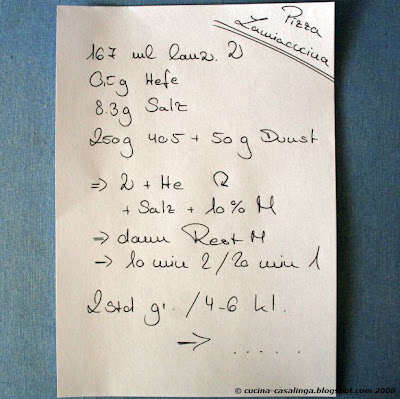 Pizza
Lamiacucina
167 ml lauw. 2
0,5g Hefe
8.3g Salz
250g 405 + 50g Dunst
=> 2 + He Ω
+ Salz + 10% M
-> dann Rest M
-> 10 min 2 / 20 min 1
2 Std gr. / 4-6 kl.
-> .....
© cucina-casalinga.blogspot.com 2008